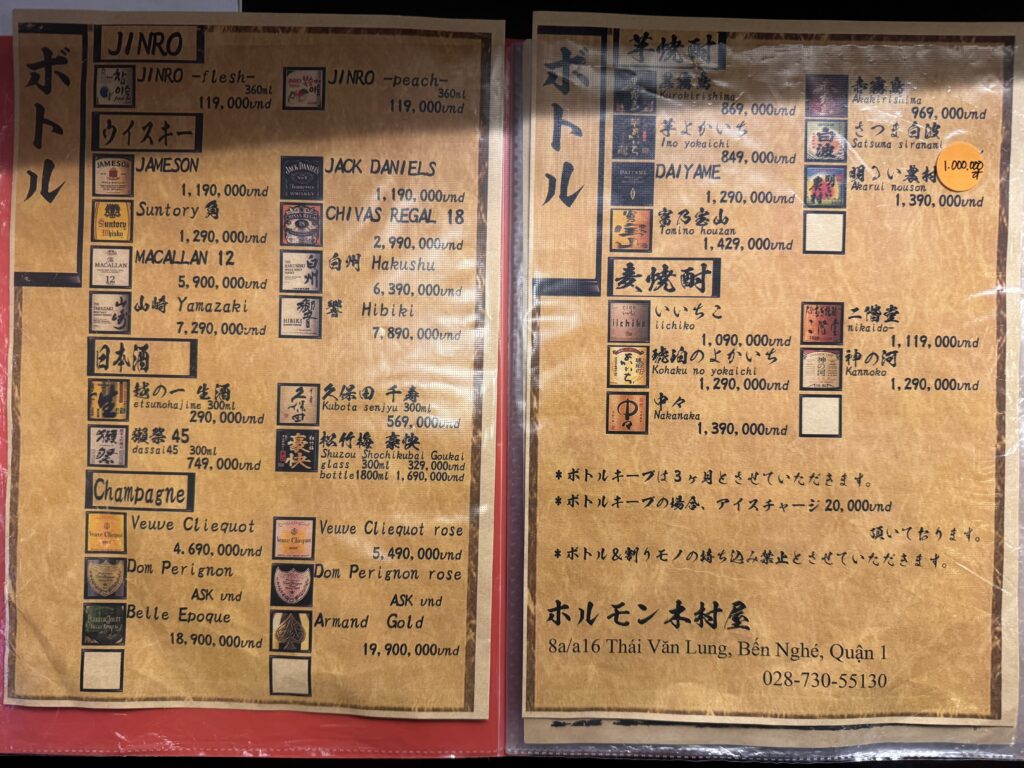 ボトル
JINRO
JINRO -flesh-
360ml
119,000vnd
JINRO -peach-
360ml
119,000vnd
ウイスキー
JAMESON
1,190,000vnd
JACK DANIELS
1,190,000vnd
Suntory 角
1,290,000vnd
CHIVAS REGAL 18
2,990,000vnd
MACALLAN 12
5,900,000vnd
白州 Hakushu
6,390,000vnd
山崎 Yamazaki
7,290,000vnd
響 Hibiki
7,890,000vnd
日本酒
越の一 生酒
etsunohajime 300ml
290,000vnd
久保田 千寿
Kubota senjyu 300ml
569,000vnd
獺祭 45
dassai45 300ml
749,000vnd
松竹梅 豪快
Shuzou Shochikubai Goukai
glass 300ml 329,000vnd
bottle1800ml 1,690,000vnd
Champagne
Veuve Clicquot
4.690,000vnd
Veuve Clicquot rose
5,490,000vnd
Dom Perignon
ASK vnd
Dom Perignon rose
ASK vnd
Belle Epoque
18,900,000vnd
Armand Gold
19,900,000vnd
ボトル
芋焼酎
黒霧島
Kurokirishima
869,000vnd
赤霧島
Akakirishima
969,000vnd
芋よかいち
Ino yokaichi
849,000vnd
さつま白波
Satsuma siranami
1.000,000đ
DAIYAME
1,290,000vnd
明るい農村
Akarui nouson
1,390,000vnd
富乃宝山
Tomino houzan
1,429,000vnd
麦焼酎
いいちこ
iichiko
1,090,000vnd
二階堂
nikaido-
1,119,000vnd
琥珀のよかいち
Kohaku no yokaichi
1,290,000vnd
神の河
Kannoko
1,290,000vnd
中々
Nakanaka
1,390,000vnd
*ボトルキープは3ヶ月とさせていただきます。
*ボトルキープの場合、アイスチャージ20,000vnd
頂いております。
*ボトル&割りモノの持ち込み禁止とさせていただきます。
ホルモン木村屋
8a/a16 Thái Văn Lung, Bến Nghé, Quận 1
028-730-55130